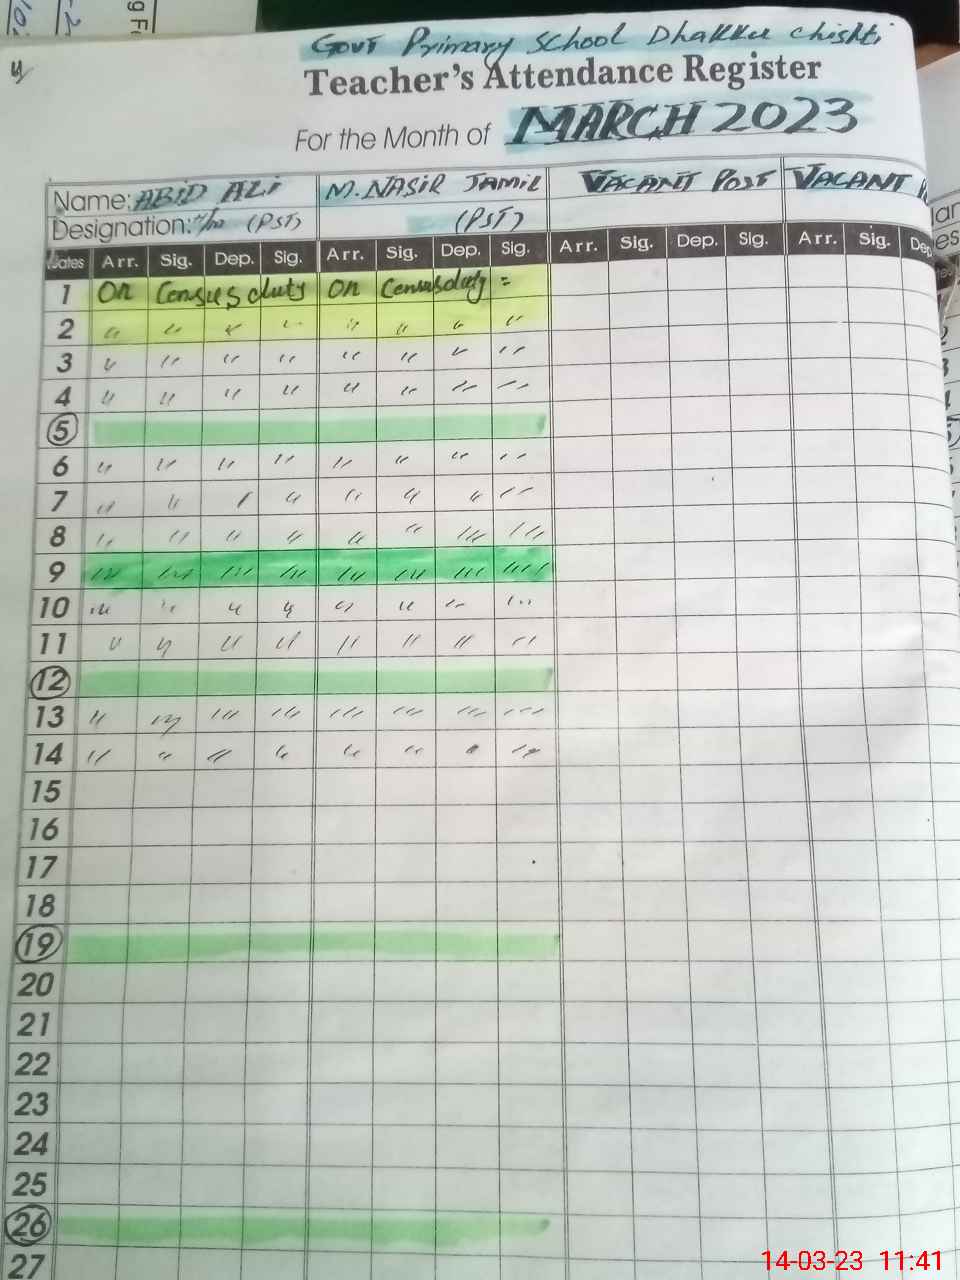 Govt Primary School Dhakku chishti
Teacher's Attendance Register
For the Month of MARCH 2023
Name: ABID ALI M.NASIR JAMIL VACANT POST VACANT
Designation: (PST) (PST)
Dates Arr. Sig. Dep. Sig. Arr. Sig. Dep. Sig. Arr. Sig. Dep. Sig. Arr. Sig. Dep
1 On Census duty On Census duty =
2 " " " " " " " "
3 " " " " " " " "
4 " " " " " " " "
5
6 " " " " " " " "
7 " " " " " " " "
8 " " " " " " " "
9 " " " " " " " "
10 " " " " " " " "
11 " " " " " " " "
12
13 " " " " " " " "
14 " " " " " " " "
15
16
17
18
19
20
21
22
23
24
25
26
27
14-03-23 11:41